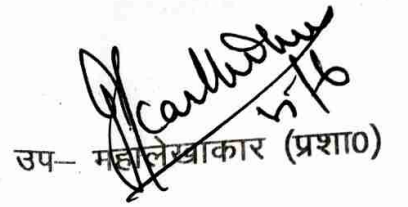 5/6
उप– महालेखाकार (प्रशा0)